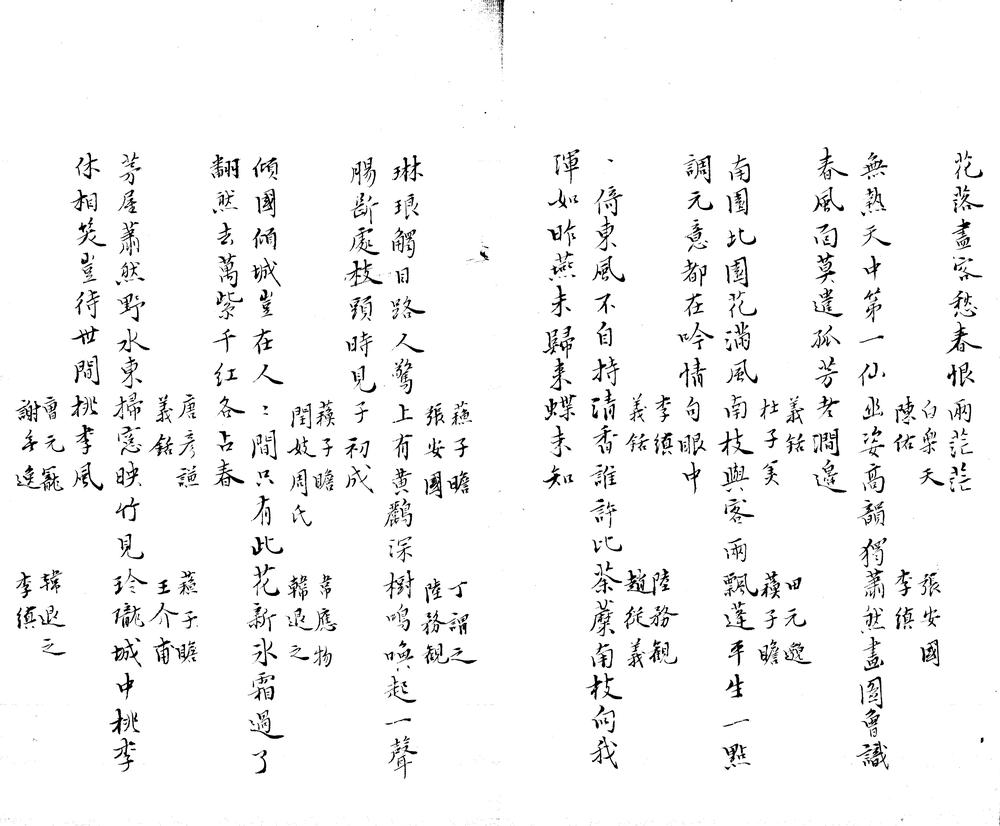 花落盡客愁春恨兩茫茫
白樂天
陳佑
張安國
李縝
無熱天中第一仙幽姿高韻獨蕭然畫圖曾識
春風面莫遣孤芳老澗邊
義銛
杜子美
田元邈
蘓子瞻
南園北園花滿風南枝與客兩飄蓬平生一點
調元意都在吟情句眼中
李縝
義銛
陸務觀
趙從義
、倚東風不自持清香誰許比荼蘼南枝向我
渾如昨燕未歸来蝶未知
蘓子瞻
張安國
丁謂之
陸務觀
琳琅觸目路人驚上有黄鸝深樹鳴喚起一聲
腸斷處枝頭時見子初成
蘓子瞻
閏妓周氏
韋應物
韓退之
傾國傾城豈在人〻間只有此花新氷霜過了
翻然去萬紫千紅各占春
唐彦謙
義銛
蘓子瞻
王介甫
茅屋蕭然野水東掃窓映竹見玲瓏城中桃李
休相笑豈待世間桃李風
曹元寵
謝無逸
韓退之
李縝